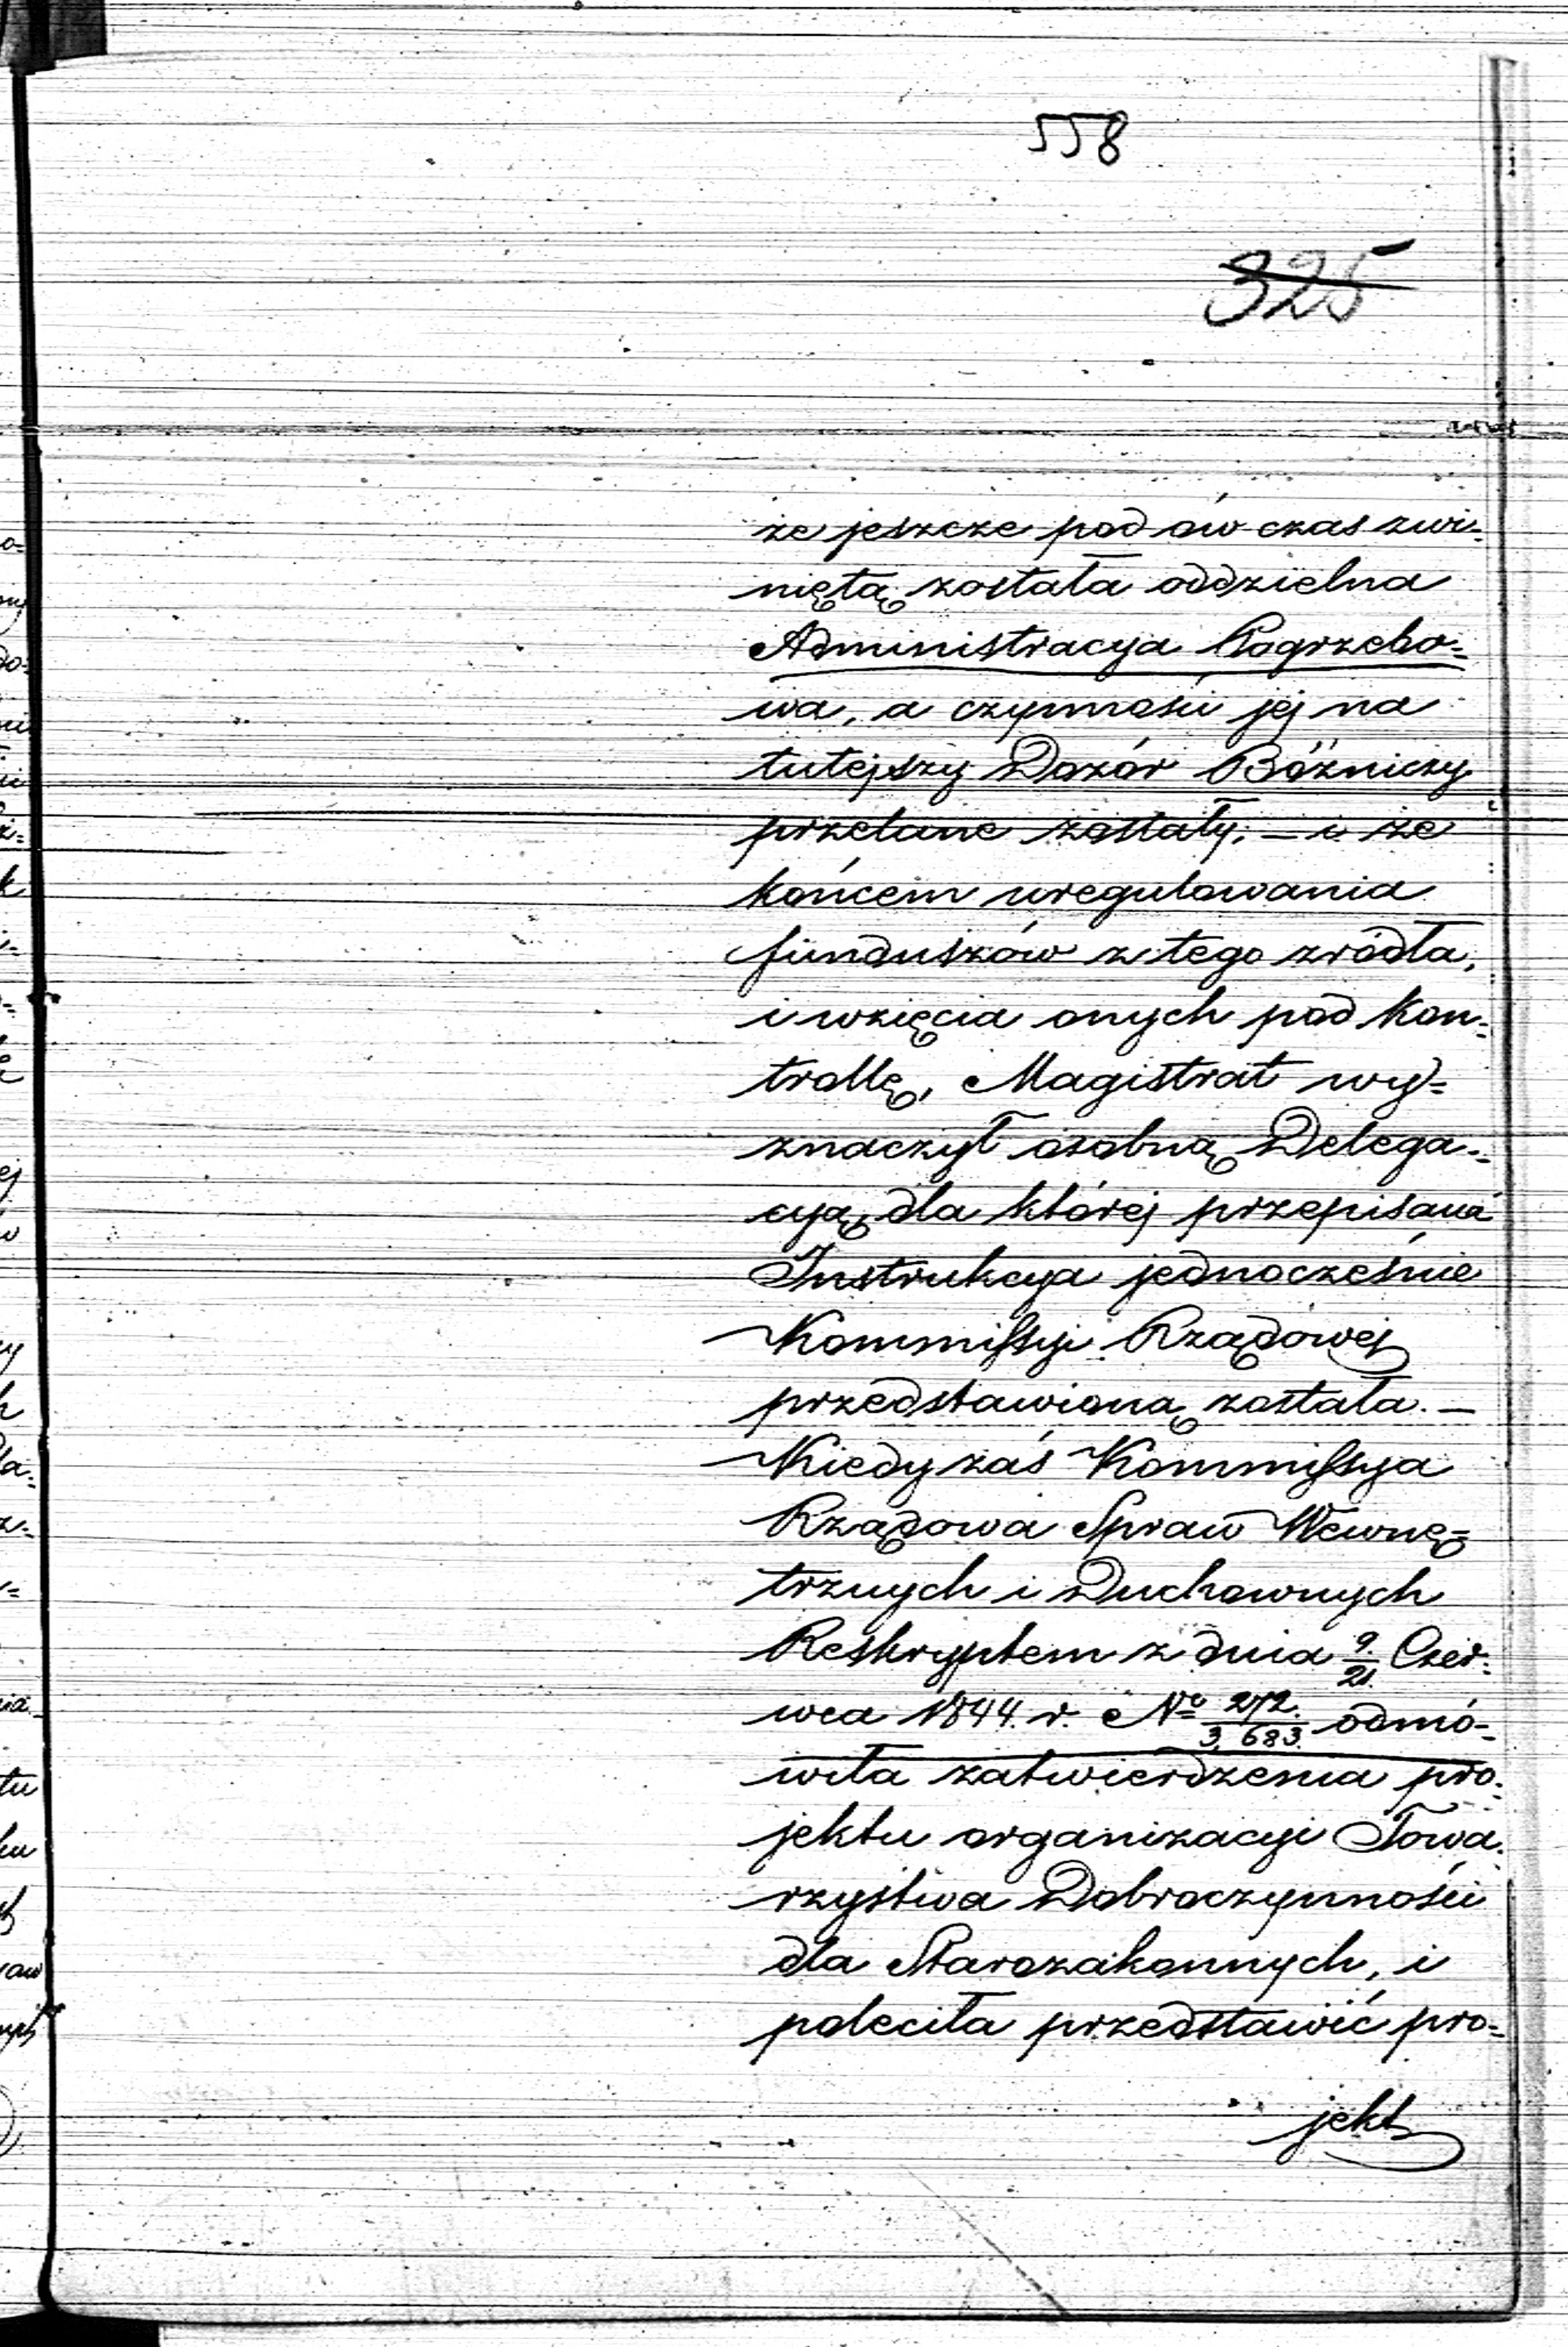 558
325
że jeszcze pod ów czas zwi-
niętą została oddzielna
Administracya Pogrzebo-
wa, a czynności jej na
tutejszy Dozór Bóżniczy
przelane zostały; – i że
końcem uregulowania
funduszów z tego zródła,
i wzięcia onych pod kon-
trollę, Magistrat wy-
znaczył osobną Delega-
cyą, dla której przepisana
Instrukcya jednocześnie
Kommissyi Rządowej
przedstawioną została. –
Kiedy zaś Kommissya
Rządowa Spraw Wewnę-
trznych i Duchownych
Reskryptem z dnia 9/21 Czer-
wca 1844. r. No 272./3,683. odmó-
wiła zatwierdzenia pro-
jektu organizacyi Towa-
rzystwa Dobroczynności
dla Starozakonnych, i
poleciła przedstawić pro-
jekt